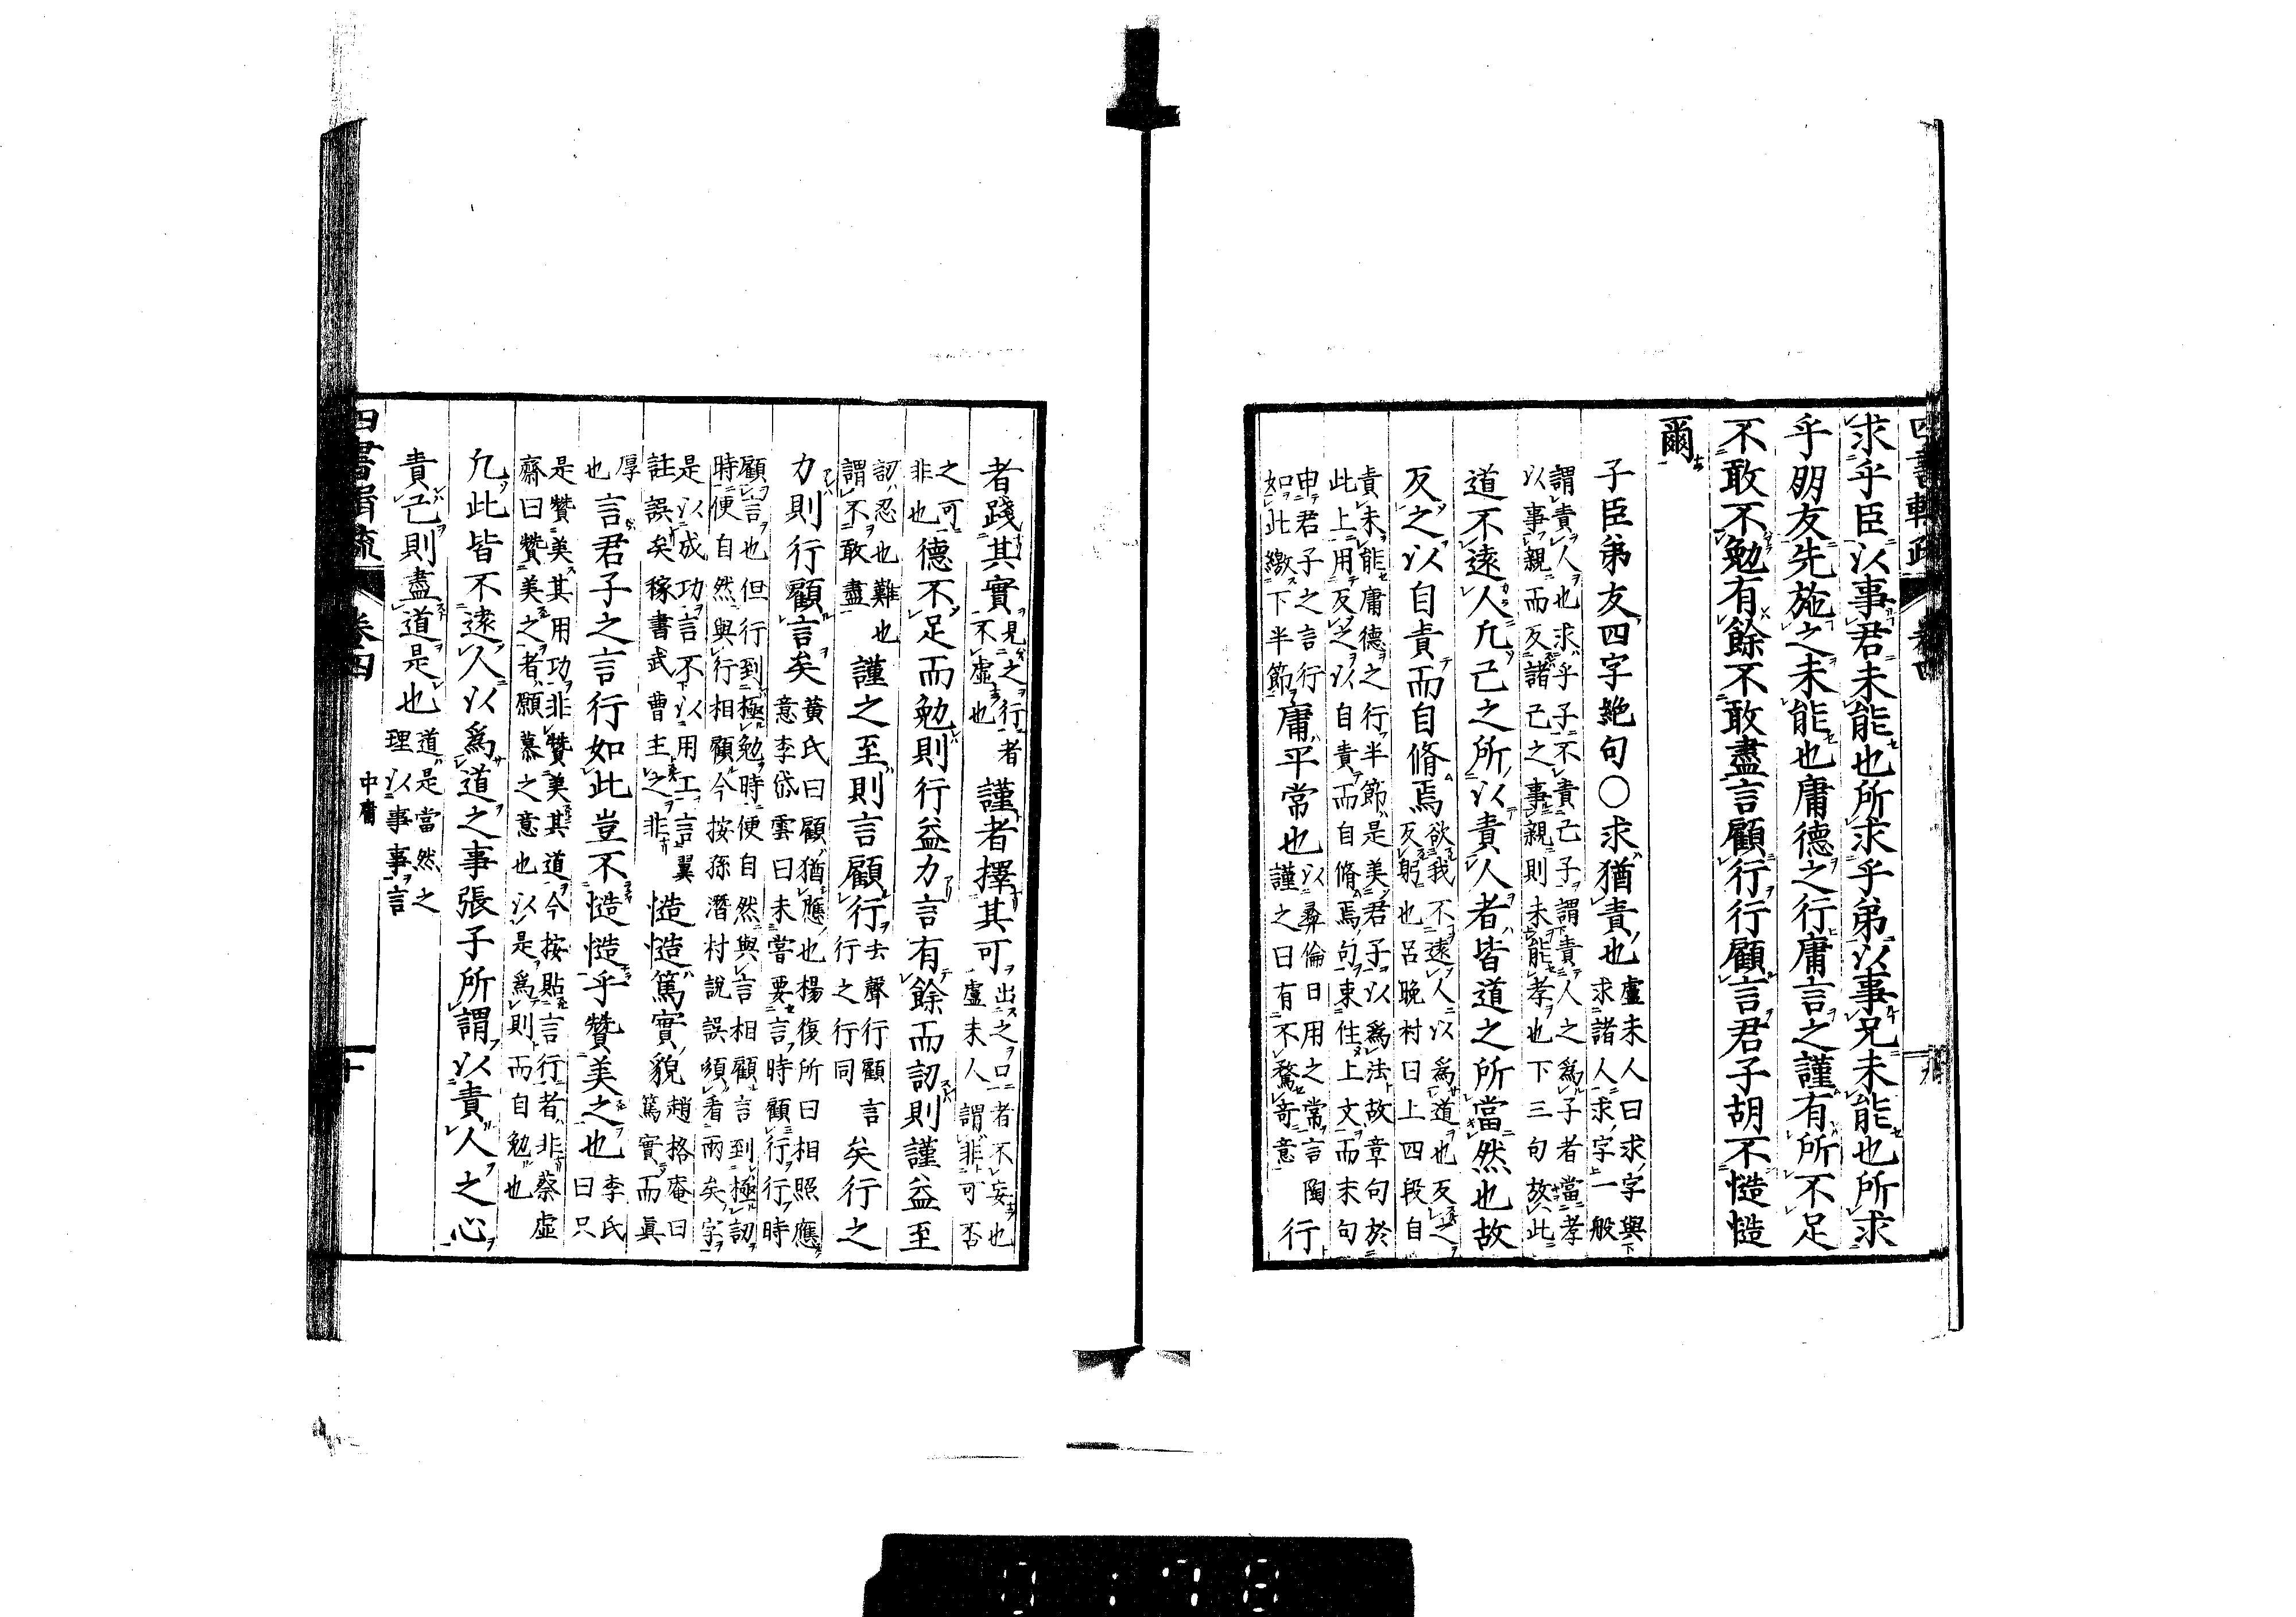 四書輯疏 卷四
求乎臣以事君未能也所求乎弟以事兄未能也所求
乎朋友先施之未能也庸德之行庸言之謹有所不足
不敢不勉有餘不敢盡言顧行行顧言君子胡不慥慥
爾
子臣弟友四字絶句○求猶責也
盧未人曰求字與
求諸人求字一般
謂責人也求乎子不責己子謂責人之爲子者當孝
以事親而反諸己之事親則未能孝也下三句故此
道不遠人凡己之所以責人者皆道之所當然也故
反之以自責而自脩焉
欲我不遠人以爲道也反之
反躬也呂晚村曰上四段自
責未能庸德之行半節是美君子以爲法故章句於
此上用反之以自責而自脩焉句束住上文而末句
申君子之言行
如此繳下半節
庸平常也
以彝倫日用之常言陶
謹之曰有不騖奇意
行
者踐其實
見之行者
不虛也
謹者擇其可
出之口者不妄也
盧未人謂非可否
之可
非也
德不足而勉則行益力言有餘而訒則謹益至
訒忍也難也
謂不敢盡
謹之至則言顧行
去聲行顧言
行之行同
矣行之
力則行顧言矣
黃氏曰顧猶應也楊復所曰相照應
意李岱雲曰未嘗要言時顧行行時
顧言也但行到極勉時便自然與言相顧言到極訒
時便自然與行相顧今按孫潛村說誤須看兩矣字
是以成功言不以用工言翼
註誤矣稼書武曹主之非
慥慥篤實貌
趙格庵曰
篤實而眞
厚
也
言君子之言行如此豈不慥慥乎贊美之也
李氏
曰只
是贊美其用功非贊美其道今按貼言行者非蔡虛
齋曰贊美之者願慕之意也以是爲則而自勉也
凡此皆不遠人以爲道之事張子所謂以責人之心
責己則盡道是也
道是當然之
理以事事言
四書輯疏 卷四 中庸 十